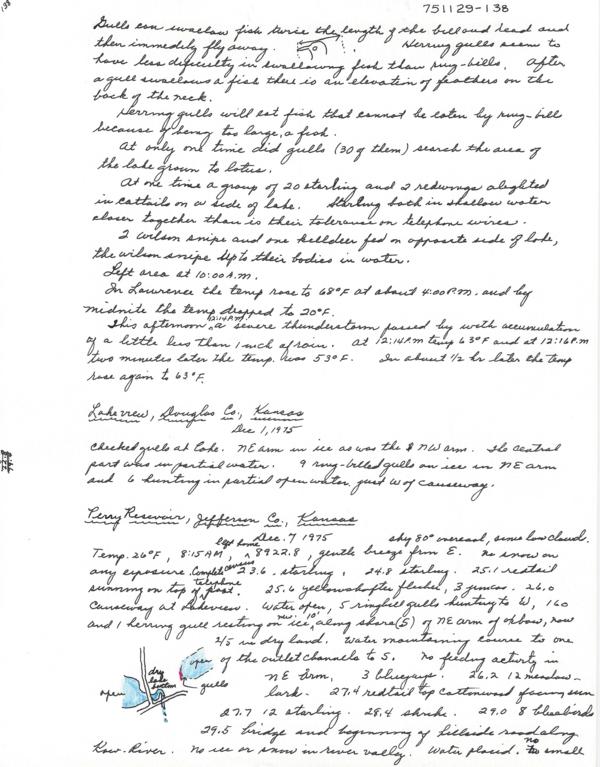 751129-138
138
Gulls can swallow fish twice the length of the bill and head and
then immedily fly away. Herring gulls seem to
have less dificulty in swallowing fish than ring-bills. After
a gull swallows a fish there is an elevation of feathers on the
back of the neck.
Herring gulls will eat fish that cannot be eaten by ring-bill
because of being too large, a fish.
At only one time did gulls (30 of them) search the area of
the lake grown to lotus.
At one time a group of 20 starling and 2 redwings alighted
in cattails on W side of lake. Starling bath in shallow water
closer together than is their tolerance on telephone wires.
2 Wilson snipe and one killdeer fed on opposite side of lake,
the Wilson snipe up to their bodies in water.
Left area at 10:00 A.M.
In Lawrence the temp rose to 68°F at about 4:00 P.M. and by
midnite the temp dropped to 20°F.
12:14 P.M.
This afternoon, a severe thunderstorm passed by with accumulation
of a little less than 1 inch of rain. At 12:14 P.M temp 63°F and at 12:16 P.M
two minutes later the temp. was 53°F. In about 1/2 hr later the temp
rose again to 63°F.
Lakeview, Douglas Co., Kansas
Dec 1, 1975
Checked gulls at lake. NE arm in ice as was the NW arm. The central
part was in partial water. 9 ring-billed gulls on ice in NE arm
and 6 hunting in partial open water, just W of causeway.
Perry Resevoir, Jefferson Co., Kansas
Dec. 7 1975 sky 80% overcast, some low cloud.
left home
Temp. 26°F, 8:15 AM, 8922.8, gentle breeze from E. no snow on
any exposure. Complete census 23.6. starling, 24.8 starling. 25.1 redtail
sunning on top of telephone post. 25.6 yellowshafter flicker, 3 juncos. 26.0
causeway at Lakeview. Water open, 5 ringbill gulls hunting to W, 160
and 1 herring gull resting on new ice, 10' along shore (S) of NE arm of oxbow, now
2/5 in dry land. Water maintaining course to one
of the outlet channels to S. No feeding activity in
NE arm, 3 bluejays. 26.2 12 meadow-
lark. 27.4 redtail top cottonwood facing sun
27.7 12 starling. 28.4 shrike. 29.0 8 bluebirds
open
dry lake bottom
open
gulls
29.5 bridge and beginning of hillside road along
Kaw River. No ice or snow in river valley. Water placid. no small